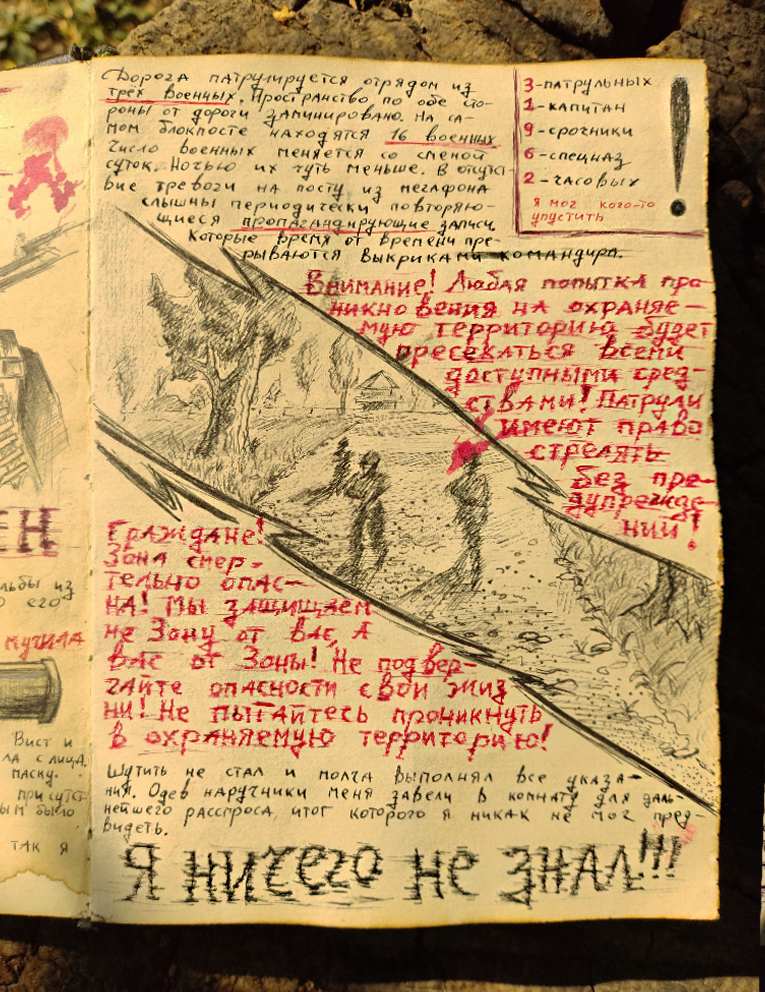 ЕН
льбы из
о его
мучила
Вист и
ла с лица
маску.
при сутст-
ым было
так я
Дорога патрулируется отрядом из
трёх военных. Пространство по обе сто-
роны от дороги заминировано. На са-
мом блокпосте находятся 16 военных
число военных меняется со сменой
суток. Ночью их чуть меньше. В отсутст-
вие тревоги на посту из мегафона
слышны периодически повторяю-
щиеся пропагандирующие записи,
Которые время от времени пре-
рываются выкриками командира.
3-патрульных
1-капитан
9-срочники
6-спецназ
2-часовых
я мог кого-то
упустить
!
Внимание! Любая попытка про-
никновения на охраняе-
мую территорию будет
пресекаться всеми
доступными сред-
ствами! Патрули
имеют право
стрелять
без пре-
дупрежде-
ний!
Граждане!
Зона смер-
тельно опас-
на! Мы защищаем
не Зону от вас, А
вас от Зоны! Не подвер-
гайте опасности свои жиз
ни! Не пытайтесь проникнуть
в охраняемую территорию!
Шутить не стал и молча выполнял все указа-
ния. Одев наручники меня завели в комнату для даль-
нейшего расспроса, итог которого я никак не мог пред-
видеть.
Я ничего не знал!!!